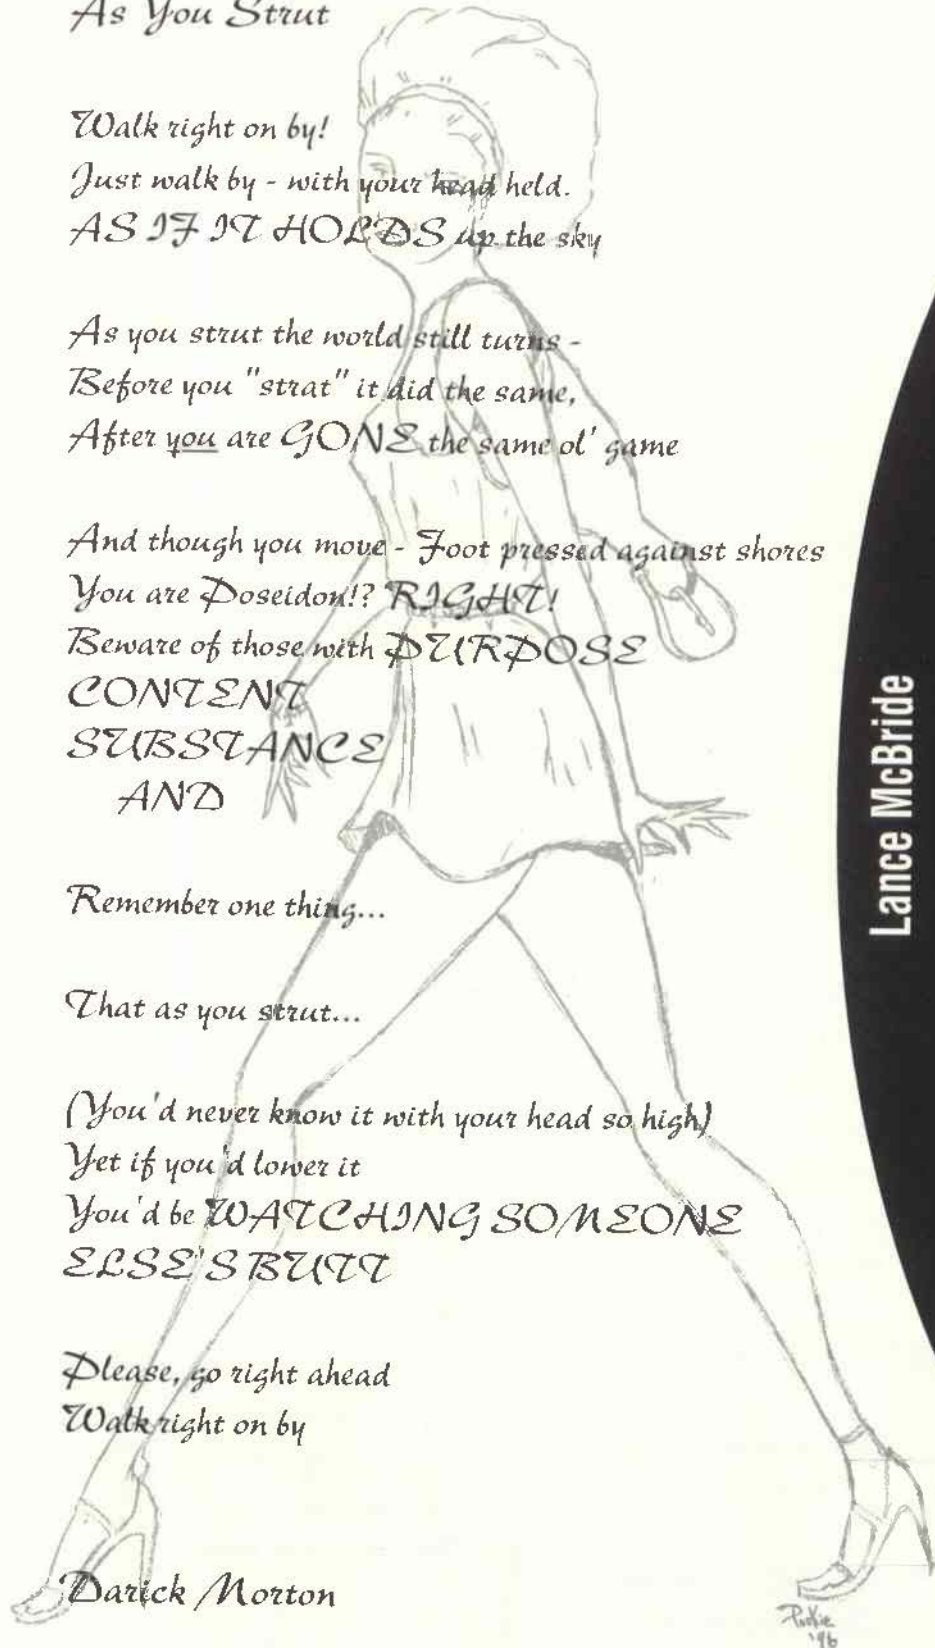 As You Strut
Walk right on by!
Just walk by - with your head held.
AS IF IT HOLDS up the sky
As you strut the world still turns -
Before you "strat" it did the same,
After you are GONE the same ol' game
And though you move - Foot pressed against shores
You are Poseidon!? RIGHT!
Beware of those with PURPOSE
CONTENT
SUBSTANCE
AND
Remember one thing...
That as you strut...
(You'd never know it with your head so high)
Yet if you'd lower it
You'd be WATCHING SOMEONE
ELSE'S BUTT
Please, go right ahead
Walk right on by
Darick Morton
Lance McBride
Pookie
'96